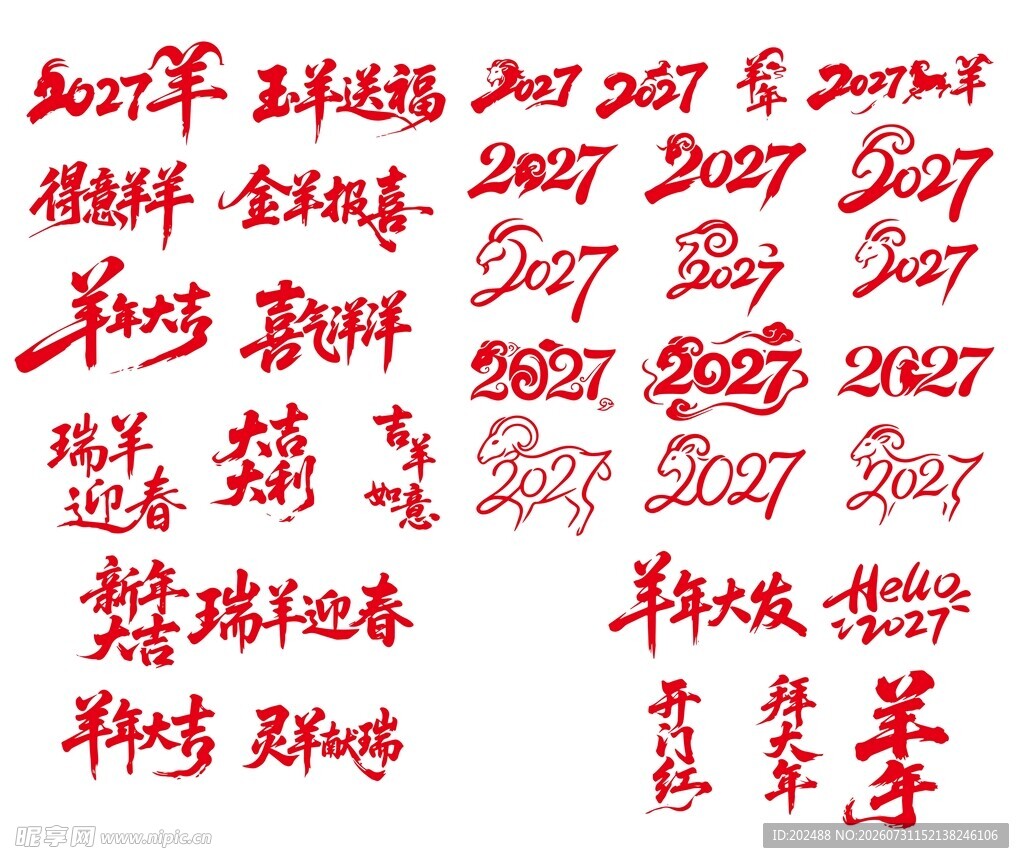 2027羊
玉羊送福
2027
2027
羊年
2027羊
得意羊羊
金羊报喜
2027
2027
2027
羊年大吉
喜气洋洋
2027
2027
2027
2027
2027
2027
瑞羊
迎春
大吉
大利
吉羊
如意
2027
2027
2027
新年
大吉
瑞羊迎春
羊年大发
Hello
2027
羊年大吉
灵羊献瑞
开门红
拜大年
羊年
昵享网 www.nipic.cn
ID:202488 NO:20260731152138246106